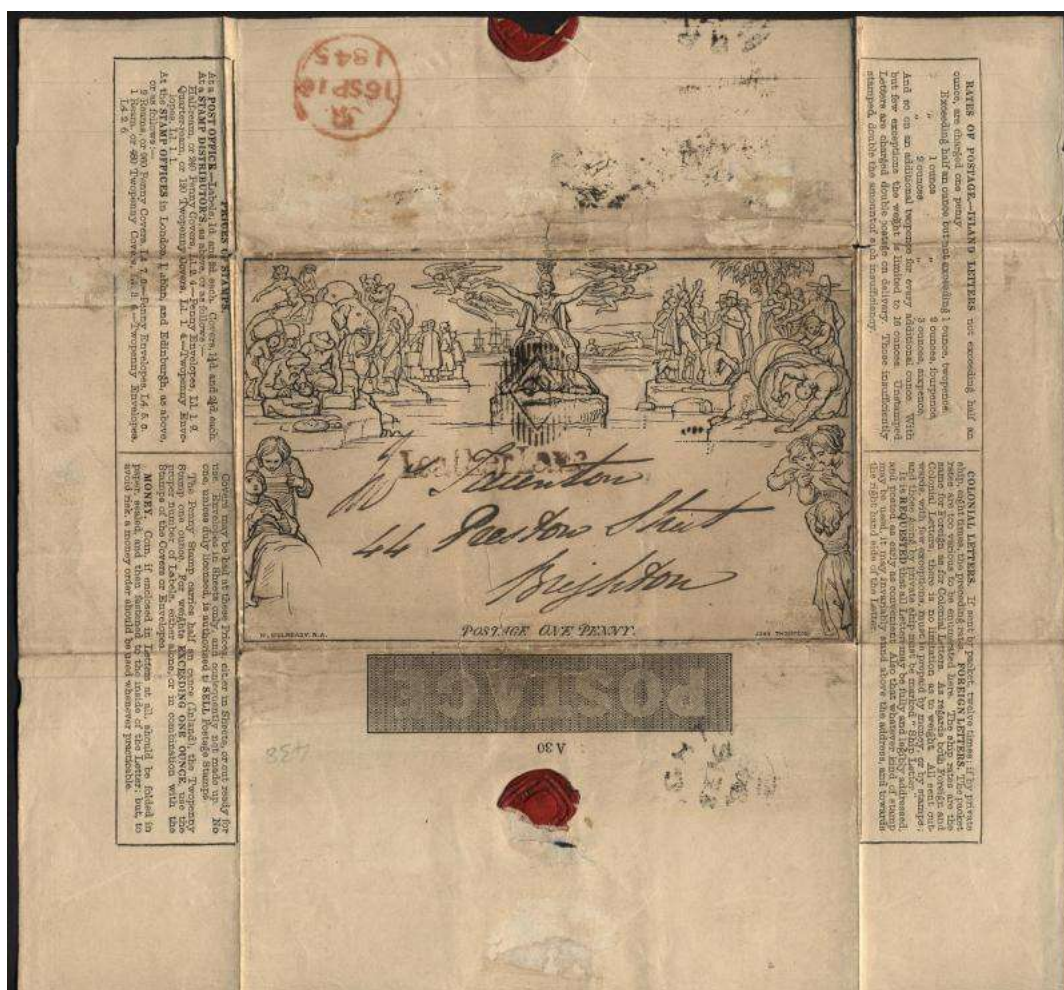 PRICES OF STAMPS.
At a POST OFFICE—Labels, 1d. and 2d. each. Covers 1¼d. and 2¼d. each.
At a STAMP DISTRIBUTOR'S, as above, or as follows:—
Half-ream, or 240 Penny Covers, L1. 2. 4—Penny Envelopes, L1. 1. 9.
Quarter-ream, or 120 Twopenny Covers, L1. 1. 4—Twopenny Enve-
lopes, L1. 1. 1.
At the STAMP OFFICES in London, Dublin, and Edinburgh, as above,
or as follows:—
2 Reams, or 960 Penny Covers, L4. 7. 0.—Penny Envelopes, L4. 5. 0.
1 Ream, or 480 Twopenny Covers, L4. 3. 6.—Twopenny Envelopes,
L4. 2. 6
Covers may be had at these Prices, either in Sheets, or cut ready for
use. Envelopes in Sheets only, and consequently not made up. No
one, unless duly licensed, is authorised to SELL Postage Stamps
The Penny Stamp carries half an ounce (Inland), the Twopenny
Stamp one ounce. For weights EXCEEDING ONE OUNCE, use the
proper number of Labels, either alone, or in combination with the
Stamps of the Covers or Envelopes.
MONEY. Coin, if enclosed in Letters at all, should be folded in
paper, sealed, and then fastened to the inside of the Letter; but, to
avoid risk, a money order should be used whenever practicable.
1845
Mr Taunton
44 Preston Street
Brighton
W. MULREADY. R.A.
POSTAGE ONE PENNY.
JOHN THOMPSON
POSTAGE
A 30
RATES OF POSTAGE.—INLAND LETTERS not exceeding half an
ounce, are charged one penny
Exceeding half an ounce but not exceeding 1 ounce, twopence.
" 1 ounce " 2 ounces, fourpence.
" 2 ounces " 3 ounces, sixpence.
And so on an additional twopence for every additional ounce. With
but few exceptions the weight is limited to 16 ounces. Unstamped
Letters are charged double postage on delivery. Those insufficiently
stamped, double the amount of such insufficiency.
COLONIAL LETTERS. If sent by packet, twelve times; if by private
ship, eight times, the preceding rates. FOREIGN LETTERS. The packet
rates are too various to be enumerated here. The ship rates are the
same for Foreign as for Colonial Letters. As regards both Foreign and
Colonial Letters, there is no limitation as to weight. All sent out-
wards, with few exceptions must be prepaid by money, or by stamps;
and those going by private ship must be marked "Ship Letter."
It is REQUESTED that all Letters may be fully and legibly addressed,
and posted as early as convenient. Also that whatever kind of stamp
may be used, it may invariably stand above the address, and towards
the right hand side of the Letter.